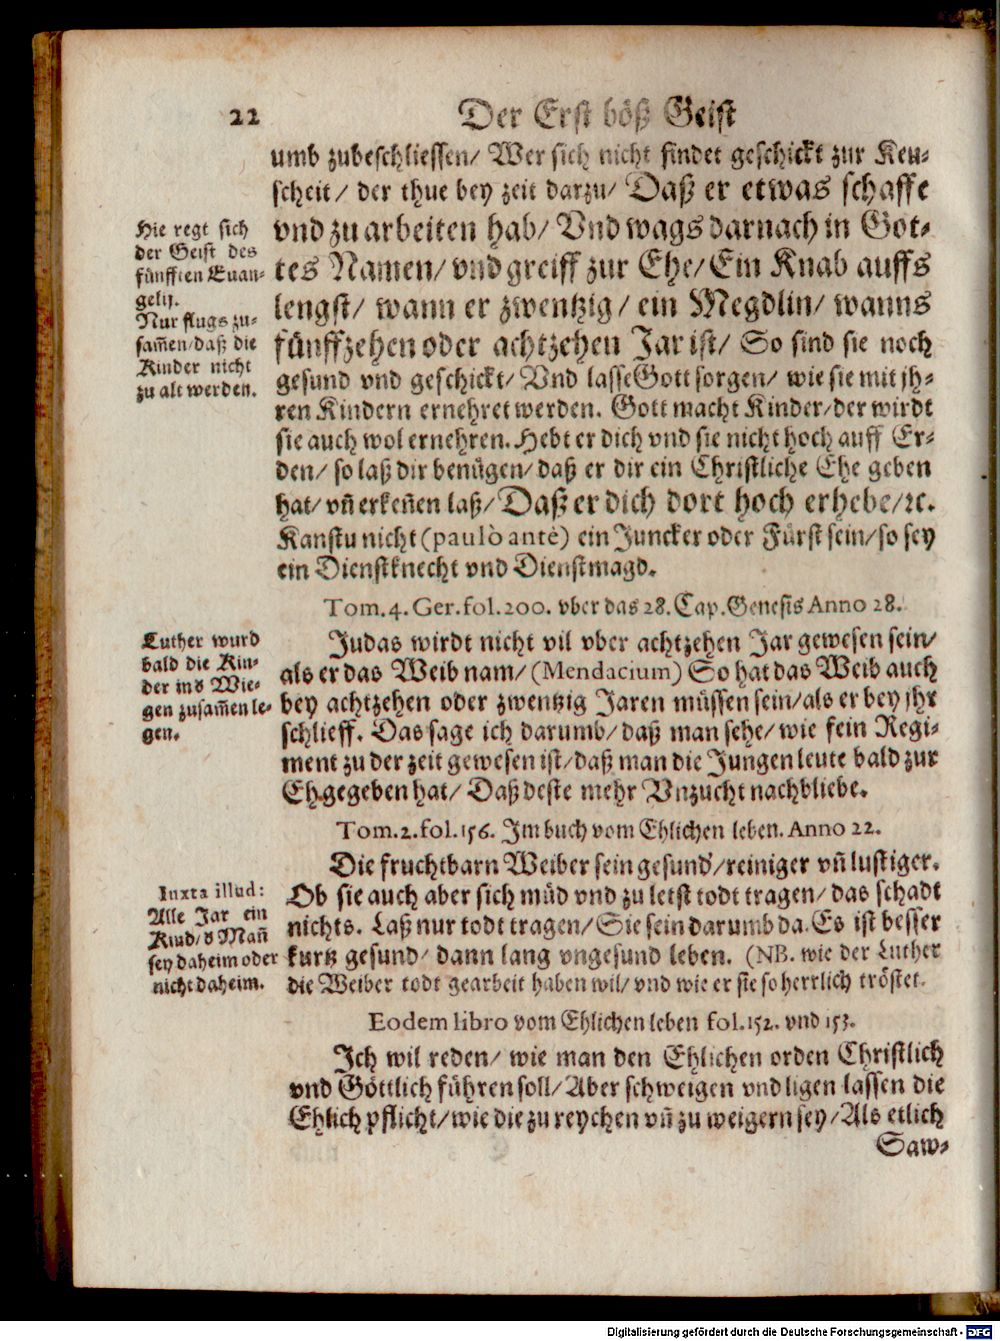 22
Der Erst böß Geist
umb zubeschliessen/ Wer sich nicht findet geschickt zur Keu-
scheit/ der thue bey zeit darzu/ Daß er etwas schaffe
vnd zu arbeiten hab/ Vnd wags darnach in Got-
tes Namen/ vnd greiff zur Ehe/ Ein Knab auffs
lengst/ wann er zwentzig/ ein Megdlin/ wanns
fünffzehen oder achtzehen Jar ist/ So sind sie noch
gesund vnd geschickt/ Vnd lasse Gott sorgen/ wie sie mit jh-
ren Kindern ernehret werden. Gott macht Kinder/ der wirdt
sie auch wol ernehren. Hebt er dich vnd sie nicht hoch auff Er-
den/ so laß dir benügen/ daß er dir ein Christliche Ehe geben
hat/ vñ erkeñen laß/ Daß er dich dort hoch erhebe/ ꝛc.
Kanstu nicht (paulò antè) ein Juncker oder Fürst sein/ so sey
ein Dienstknecht vnd Dienstmagd.
Hie regt sich
der Geist des
fünfften Euan-
gelij.
Nur flugs zu-
sam̃en/ daß die
Kinder nicht
zu alt werden.
Tom. 4. Ger. fol. 200. vber das 28. Cap. Genesis Anno 28.
Judas wirdt nicht vil vber achtzehen Jar gewesen sein/
als er das Weib nam/ (Mendacium) So hat das Weib auch
bey achtzehen oder zwentzig Jaren müssen sein/ als er bey jhr
schlieff. Das sage ich darumb/ daß man sehe/ wie fein Regi-
ment zu der zeit gewesen ist/ daß man die Jungen leute bald zur
Eh gegeben hat/ Daß deste mehr Vnzucht nachbliebe.
Luther wurd
bald die Kin-
der ins Wie-
gen zusam̃en le-
gen.
Tom. 2. fol. 156. Im buch vom Ehlichen leben. Anno 22.
Die fruchtbarn Weiber sein gesund/ reiniger vñ lustiger.
Ob sie auch aber sich müd vnd zu letst todt tragen/ das schadt
nichts. Laß nur todt tragen/ Sie sein darumb da. Es ist besser
kurtz gesund/ dann lang vngesund leben. (NB. wie der Luther
die Weiber todt gearbeit haben wil/ vnd wie er sie so herrlich tröstet.
Iuxta illud:
Alle Jar ein
Kind/ d Mañ
sey daheim oder
nicht daheim.
Eodem libro vom Ehlichen leben fol. 152. vnd 153.
Ich wil reden/ wie man den Ehlichen orden Christlich
vnd Göttlich führen soll/ Aber schweigen vnd ligen lassen die
Ehlich pflicht/ wie die zu reychen vñ zu weigern sey/ Als etlich
Saw-
Digitalisierung gefördert durch die Deutsche Forschungsgemeinschaft - DFG